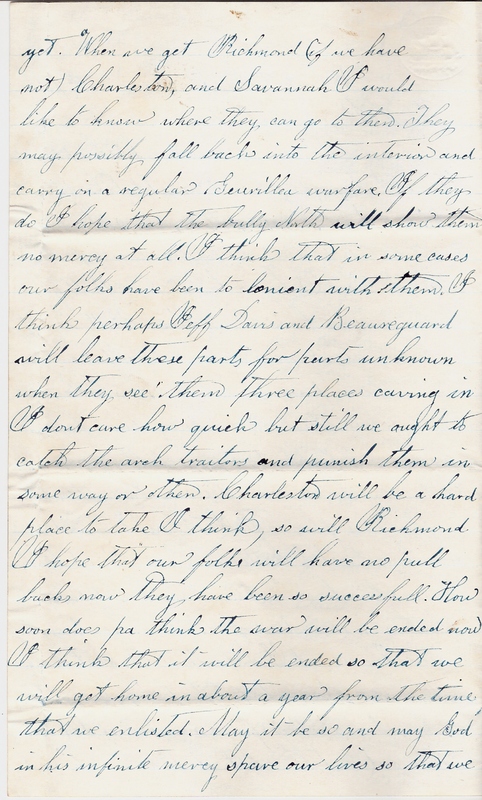 yet. When we get Richmond (if we have
not) Charleston, and Savannah I would
like to know where they can go to then. They
may possibly fall back into the interior and
carry on a regular Geurillea warfare. If they
do I hope that the bully North will show them
no mercy at all. I think that in some cases
our folks have been to lenient with them. I
think perhaps Jeff Davis and Beaureguard
will leave these parts for parts unknown
when they see them three places caving in
I dont care how quick but still we aught to
catch the arch traitors and punish them in
some way or other. Charleston will be a hard
place to take I think, so will Richmond
I hope that our folks will have no pull
back now they have been so successfull. How
soon does pa think the war will be ended now
I think that it will be ended so that we
will got home in about a year from the time
that we enlisted. May it be so and may God
in his infinite mercy spare our lives so that we